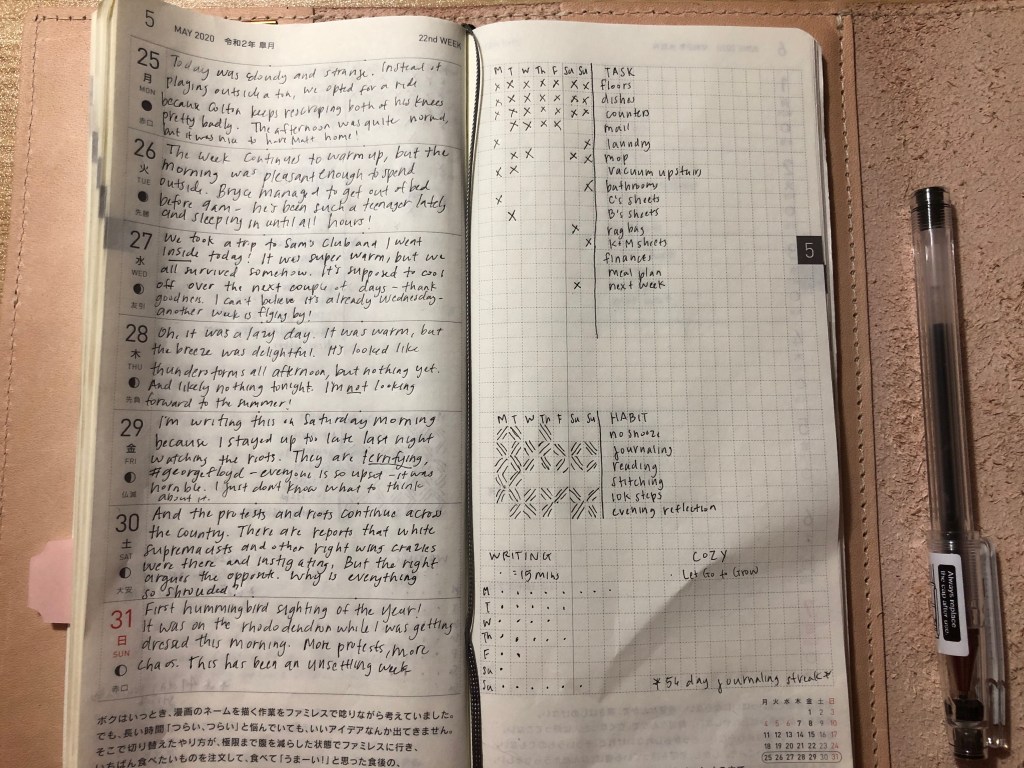 5
MAY 2020 令和2年 皐月
22nd WEEK
25
月
MON
赤口
Today was cloudy and strange. Instead of
playing outside a ton, we opted for a ride
because Colton keeps rescraping both of his knees
pretty badly. The afternoon was quite normal,
but it was nice to have Matt home!
26
火
TUE
先勝
The week continues to warm up, but the
morning was pleasant enough to spend
outside. Bryce managed to get out of bed
before 9am - he's been such a teenager lately
and sleeping in until all hours!
27
水
WED
友引
We took a trip to Sam's Club and I went
inside today! It was super warm, but we
all survived somehow. It's supposed to cool
off over the next couple of days - thank
goodness. I can't believe it's already Wednesday -
another week is flying by!
28
木
THU
先負
Oh, it was a lazy day. It was warm, but
the breeze was delightful. It's looked like
thunderstorms all afternoon, but nothing yet.
And likely nothing tonight. I'm not looking
forward to the summer!
29
金
FRI
仏滅
I'm writing this on Saturday morning
because I stayed up too late last night
watching the riots. They are terrifying,
#georgefloyd - everyone is so upset - it was
horrible. I just don't know what to think
about it.
30
土
SAT
大安
And the protests and riots continue across
the country. There are reports that white
supremacists and other right wing crazies
were there and instigating. But the right
argues the opposite. Why is everything
so shrouded?
31
日
SUN
赤口
First hummingbird sighting of the year!
It was on the rhododendron while I was getting
dressed this morning. More protests, more
chaos. This has been an unsettling week
ボクはいっとき、漫画のネームを描く作業をファミレスで唸りながら考えていました。
でも、長い時間「つらい、つらい」と悩んでいても、いいアイデアなんか出てきません。
そこで切り替えたやり方が、極限まで腹を減らした状態でファミレスに行き、
いちばん食べたいものを注文して、食べて「うまーい！」と思った食後の、
M T W Th F Sa Su TASK
x x x x x x x floors
x x x x x x x dishes
x x x x x x x counters
x x x x mail
x x laundry
x x x x mop
x x vacuum upstairs
x bathrooms
x C's sheets
x B's sheets
x rag bag
x K&M sheets
finances
meal plan
x next week
5
M T W Th F Sa Su HABIT
no snooze
journaling
reading
stitching
10k steps
evening reflection
WRITING
• = 15 mins
M
T
W
Th
F
Sa
Su
COZY
· Let Go to Grow
*54 day journaling streak*
月 火 水 木 金 土 日
1 2 3
4 5 6 7 8 9 10
11 12 13 14 15 16 17
18 19 20 21 22 23 24
25 26 27 28 29 30 31
Always replace
the cap after use